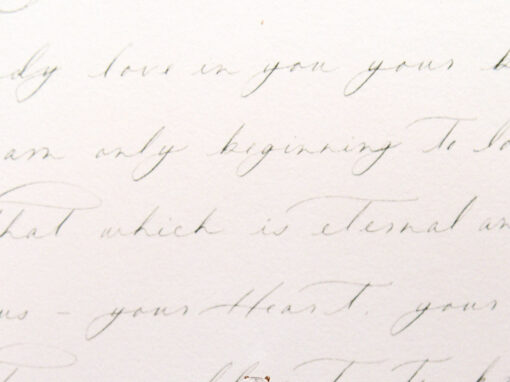 dy love in you your b
am only beginning to lo
that which is eternal an
us - your Heart, your